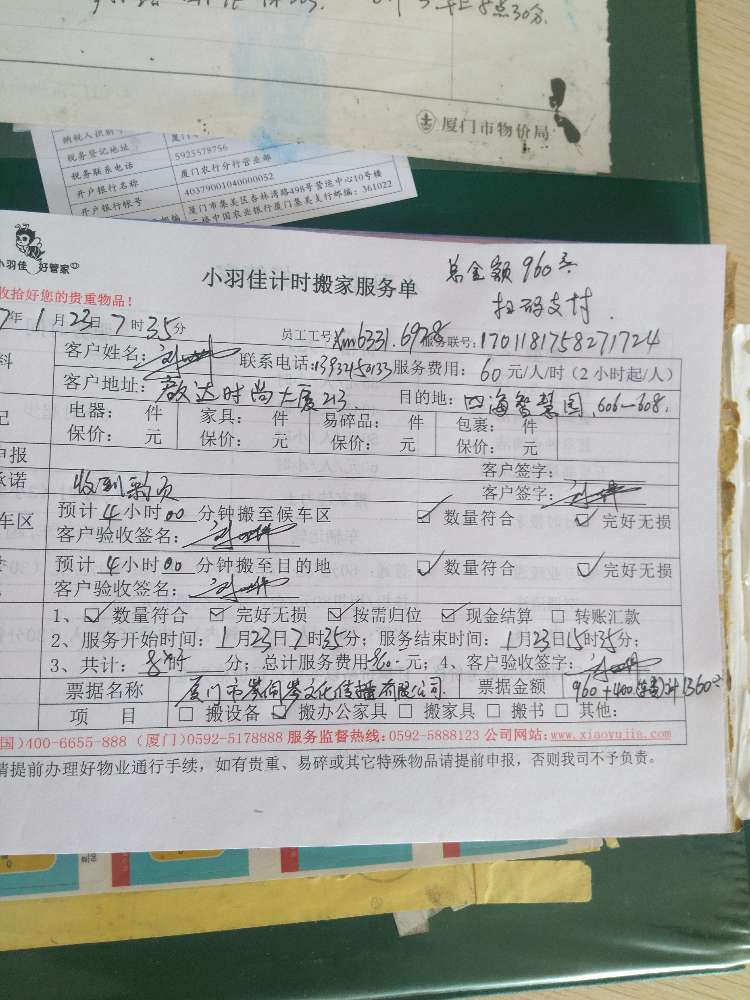 8点30分
厦门市物价局
纳税人识别号
税务登记地址
5925578756
税务联系电话
厦门农行分行营业部
开户银行名称
40379001040000052
开户银行帐号
厦门市集美区杏林湾路498号营运中心10号楼
中国农业银行厦门集美支行邮编：361022
小羽佳 好管家
小羽佳计时搬家服务单
总金额960元
扫码支付
收拾好您的贵重物品！
7年1月23日7时35分
员工工号：Xm6331.6928 服务联号：1701181758271724
客户姓名：
联系电话：13932150133 服务费用：60元/人/时（2小时起/人）
客户地址：敦达时尚大厦213
目的地：四海智慧园，606-608.
电器： 件 家具： 件 易碎品： 件 包裹： 件
保价： 元 保价： 元 保价： 元 保价： 元
申报
客户签字：
承诺
收到款项
客户签字：
车区
预计4小时00分钟搬至候车区 ☑ 数量符合 ☑ 完好无损
客户验收签名：
预计4小时00分钟搬至目的地 ☑ 数量符合 ☑ 完好无损
客户验收签名：
1、☑ 数量符合 ☑ 完好无损 ☑ 按需归位 ☑ 现金结算 □ 转账汇款
2、服务开始时间：1月23日7时35分；服务结束时间：1月23日15时35分；
3、共计： 分；总计服务费用960.元；4、客户验收签字：
票据名称 厦门市 文化传播有限公司 票据金额 960+400 计1360元
项 目 □ 搬设备 ☑ 搬办公家具 □ 搬家具 □ 搬书 □ 其他：
国）400-6655-888（厦门）0592-5178888 服务监督热线：0592-5888123 公司网站：www.xiaoyujia.com
请提前办理好物业通行手续，如有贵重、易碎或其它特殊物品请提前申报，否则我司不予负责。